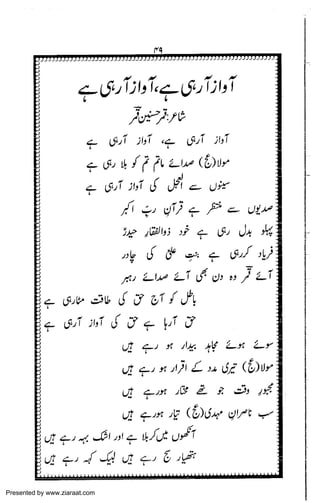 ۴۹
آواز آ رہی ہے، آواز آ رہی ہے
شاعر: قمر حسنین قمر
آواز آ رہی ہے، آواز آ رہی ہے
مولا (عج) صدائے ماتم تم کو بلا رہی ہے
سینوں سے العجل کی آواز آ رہی ہے
صدیوں سے منتظر ہے قرآنِ ربِّ اکبر
پہلو بدل رہی ہے خود ذوالفقارِ حیدرؑ
فریاد کر رہی ہے بنتِ علیؑ کی چادر
آئے قمر وہ دن بھی آئے صدائے رہبر
باطل کو آج حق کی طاقت مٹا رہی ہے
حق آ رہا ہے حق کی آواز آ رہی ہے
سوئے ہوئے مجاہد بیدار ہو رہے ہیں
مولا (عج) تیری مدد کے اقرار ہو رہے ہیں
مجبورِ وقت جو تھے مختار ہو رہے ہیں
سب ناصرانِ مہدیؑ (عج) تیار ہو رہے ہیں
آنکھوں میں کربلا ہے اور اشک بہہ رہے ہیں
ہتھیار سج رہے ہیں لبیک کہہ رہے ہیں
Presented by www.ziaraat.com